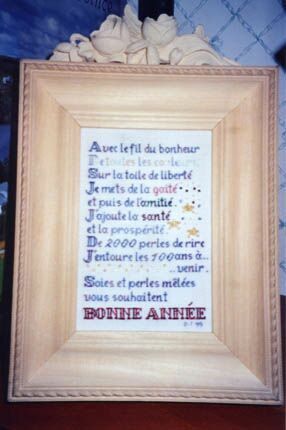 Avec le fil du bonheur
Et toutes les couleurs
Sur la toile de liberté
Je mets de la gaîté
et puis de l'amitié.
J'ajoute la santé
et la prospérité.
De 2000 perles de rire
J'entoure les 100 ans à..
venir.
Soies et perles mêlées
vous souhaitent
BONNE ANNÉE